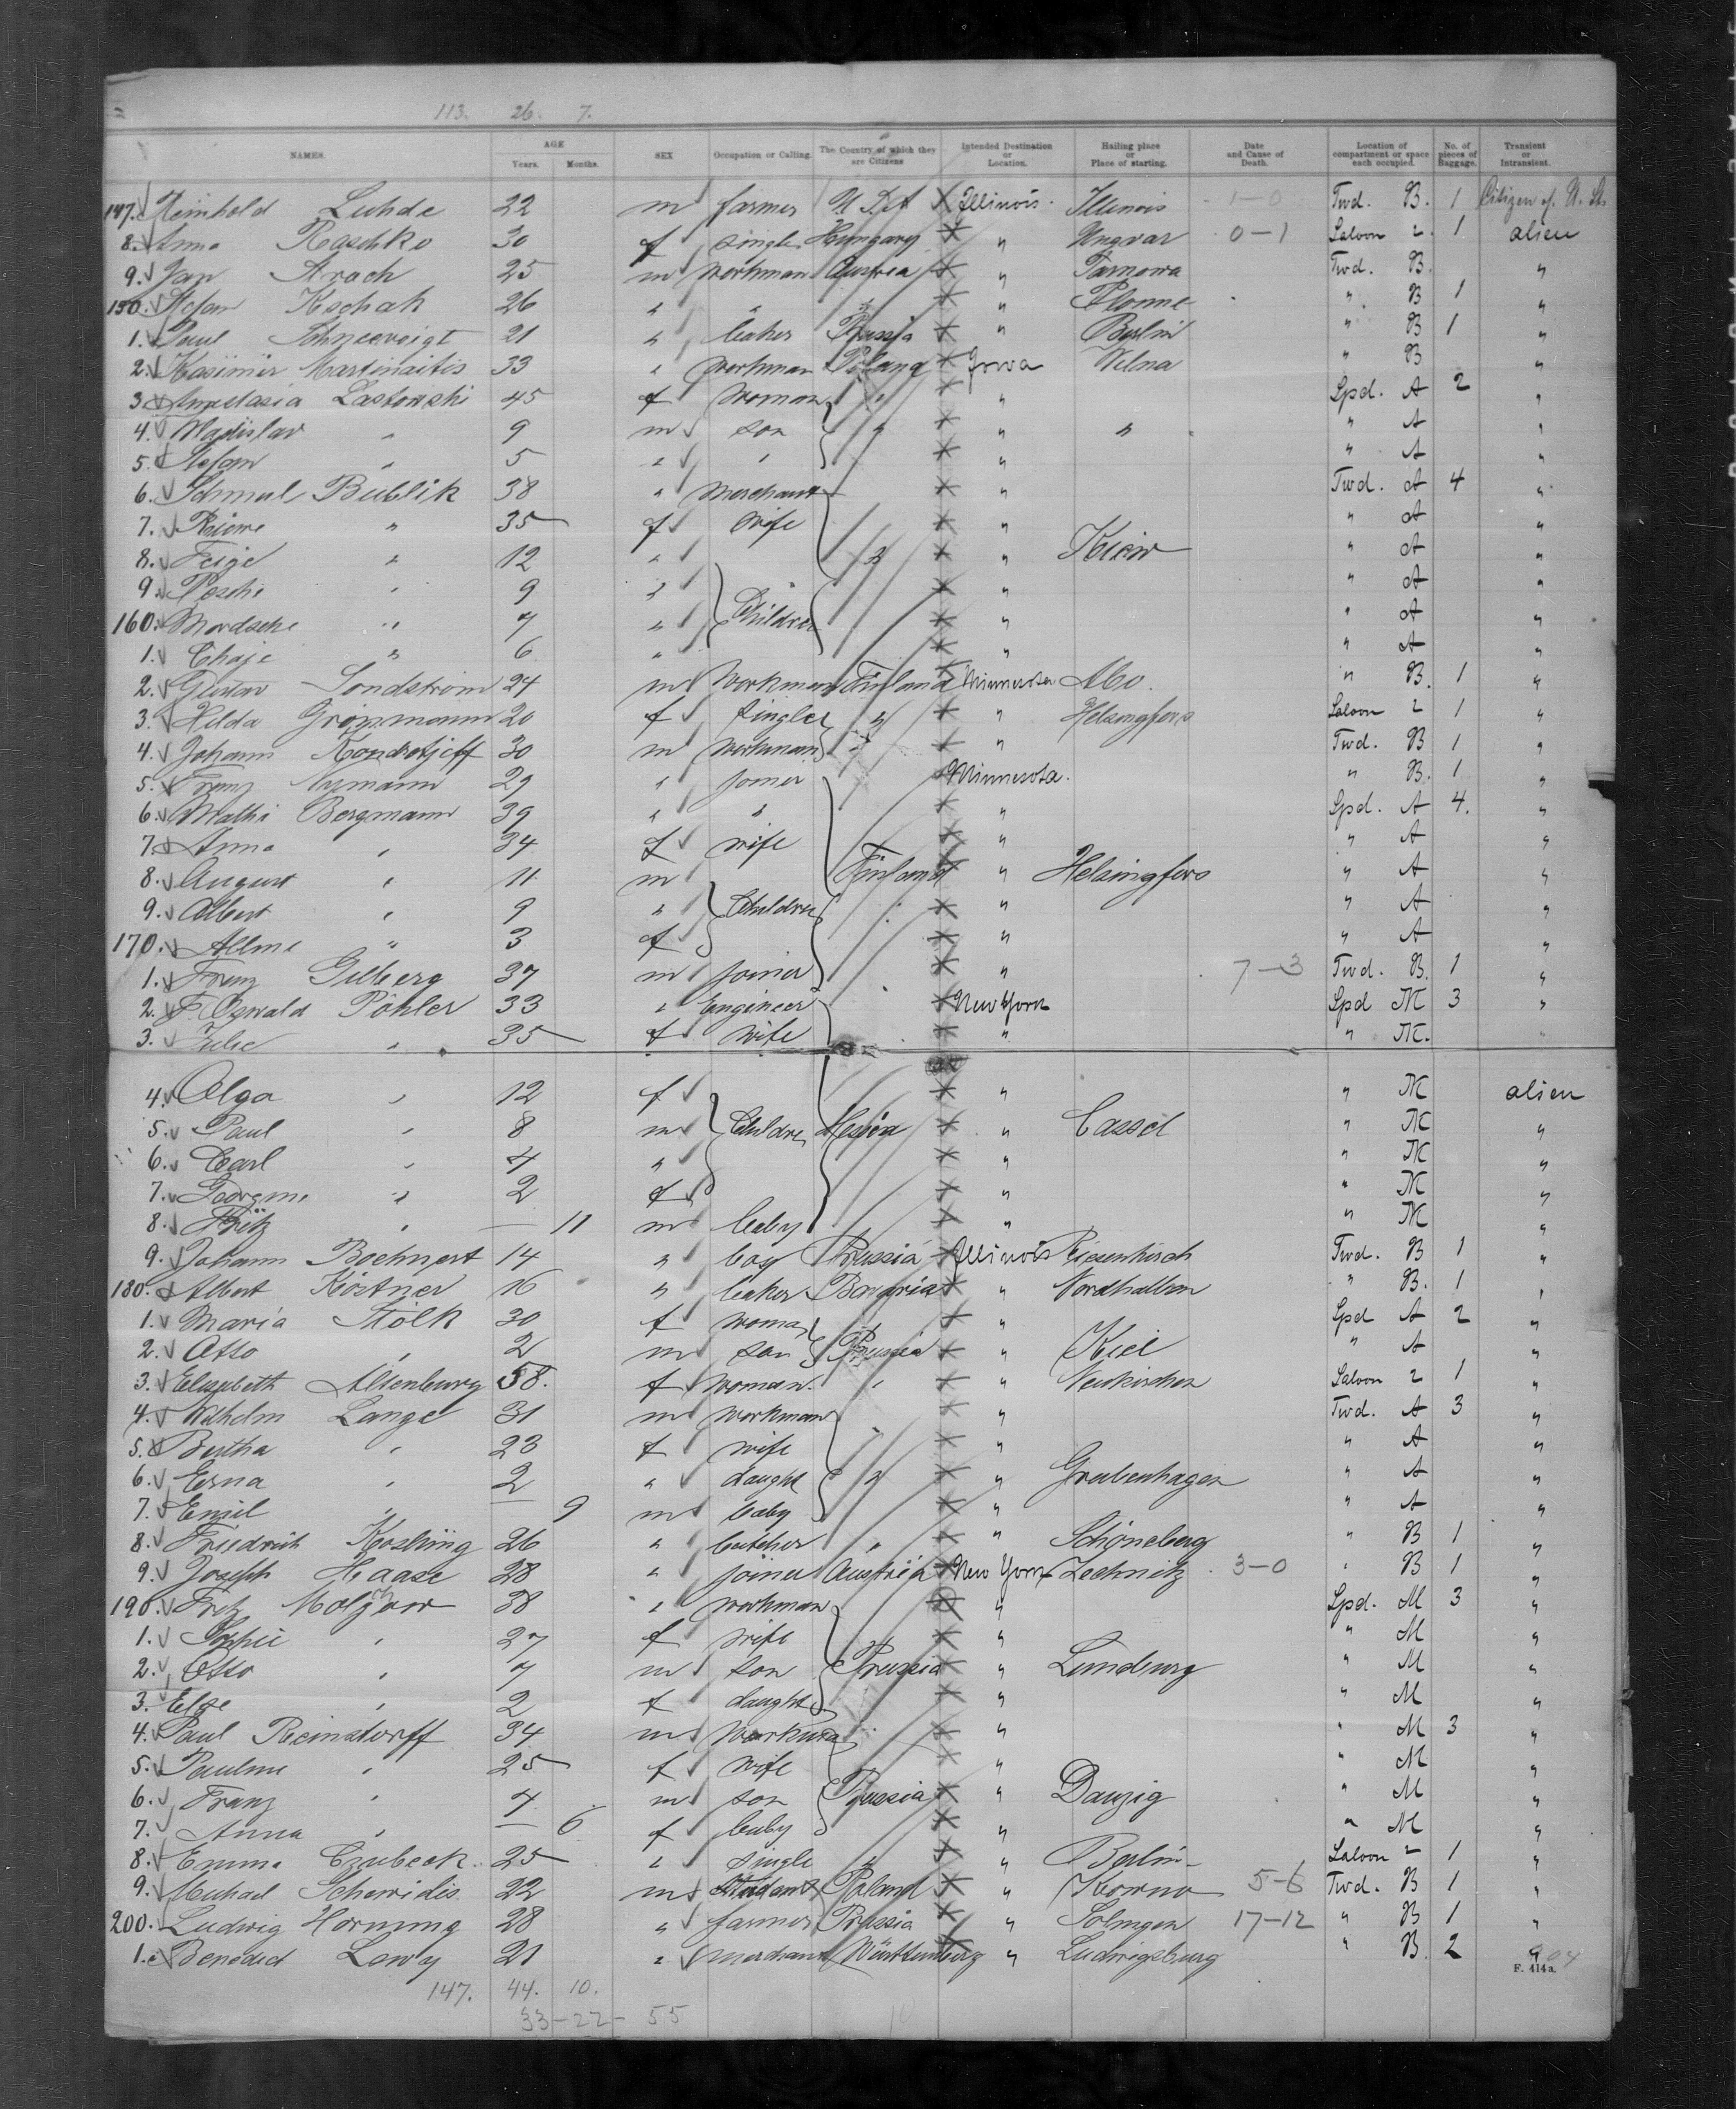 113. 26. 7.
NAMES. AGE Years. Months. SEX Occupation or Calling. The Country of which they are Citizens Intended Destination or Location. Hailing place or Place of starting. Date and Cause of Death. Location of compartment or space each occupied. No. of pieces of Baggage. Transient or Intransient.
147. Reinhold Luhde 22 m farmer U.S.A Illinois Illinois 1-0 Twd. B. 1 Citizen of U. St.
8. Anna Raschko 30 f single Hungary " Ungvar 0-1 Saloon 2. 1 alien
9. Jan Strach 25 m workman Austria " Tarnowa Twd. B. "
150. Stefan Kochak 26 " " " " Plonne " B 1 "
1. Paul Schneevoigt 21 " baker Prussia " Berlin " B 1 "
2. Kasimir Martinaitis 33 " workman Poland Iowa Wilna " B "
3. Anastasia Lastowski 45 f woman " " Spd. A 2 "
4. Wladislav " 9 m son " " " " A "
5. Stefan " 5 " " " " A "
6. Schmul Bublik 38 " merchant " Twd. A 4 "
7. Riwe " 35 f wife " " A "
8. Feige " 12 " " " Kiew " A "
9. Pesche " 9 " " " A "
160. Mordsche " 7 " Children " " A "
1. Chaje " 6 " " " A "
2. Gustav Sondstrom 24 m Workman Finland Minnesota Abo. " B. 1 "
3. Hilda Gröpmann 20 f single " " Helsingfors Saloon 2 1 "
4. Johann Kondratjeff 30 m workman " " Twd. B 1 "
5. Franz Nymann 29 " joiner Minnesota. " B. 1 "
6. Mathi Bergmann 39 " " " Spd. A 4. "
7. Anna " 34 f wife " " A "
8. August " 11 m Finland " Helsingfors " A "
9. Albert " 9 " Children " " A "
170. Allma " 3 f " " A "
1. Franz Gilberg 37 m joiner " 7-3 Twd. B. 1 "
2. F. Oswald Pöhler 33 " Engineer New York Spd M 3 "
3. Julie " 35 f wife " " M. "
4. Olga " 12 f " " M alien
5. Paul " 8 m Children Hessia " Cassel " M "
6. Carl " 4 " " " M "
7. Georgine " 2 f " " M "
8. Fritz " — 11 m baby " " M "
9. Johann Boehnert 14 " boy Prussia Illinois Riesenkirch Twd. B 1 "
180. Albert Körtner 16 " baker Bavaria " Nordhalben " B. 1 "
1. Maria Stölk 30 f woman " Spd A 2 "
2. Otto " 2 m son Prussia " Kiel " A "
3. Elisabeth Altenburg 58. f woman. " " Neukirchen Saloon 2 1 "
4. Wilhelm Lange 31 m workman " " Twd. A 3 "
5. Bertha " 23 f wife " " A "
6. Erna " 2 " daught " " Grubenhagen " A "
7. Emil " — 9 m baby " " A "
8. Friedrich Kosling 26 " butcher " " Schöneberg " B 1 "
9. Joseph Haase 28 " joiner Austria New York Zechnitz 3-0 " B 1 "
190. Fritz Molzow 38 " workman " Spd. M 3 "
1. Sophie " 27 f wife " " M "
2. Otto " 7 m son Prussia " Luneburg " M "
3. Else " 2 f daught " " M "
4. Paul Reinstorff 34 m workman " " M 3 "
5. Pauline " 25 f wife " " M "
6. Franz " 4 m son Prussia " Danzig " M "
7. Anna " — 6 f baby " " M "
8. Emma Czubeck. 25 " single " " Berlin Saloon 2 1 "
9. Michael Schawidis 22 m student Poland " Kowno 5-6 Twd. B 1 "
200. Ludwig Hornung 28 " farmer Prussia " Solingen 17-12 " B 1 "
1. Benedict Lowy 21 " merchant Württemberg " Ludwigsburg " B. 2 "
F. 414a.
147. 44. 10.
33-22- 55 10